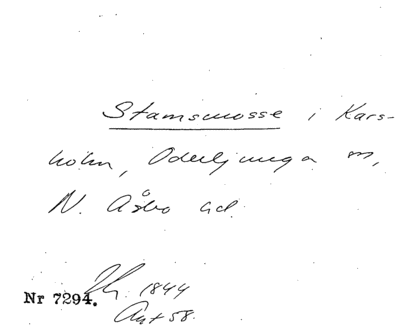 Stamsmosse i Kars-
holm, Oderljunga sn,
N. Åsbo hd.
1844
Nr 7294.
Ant 58.